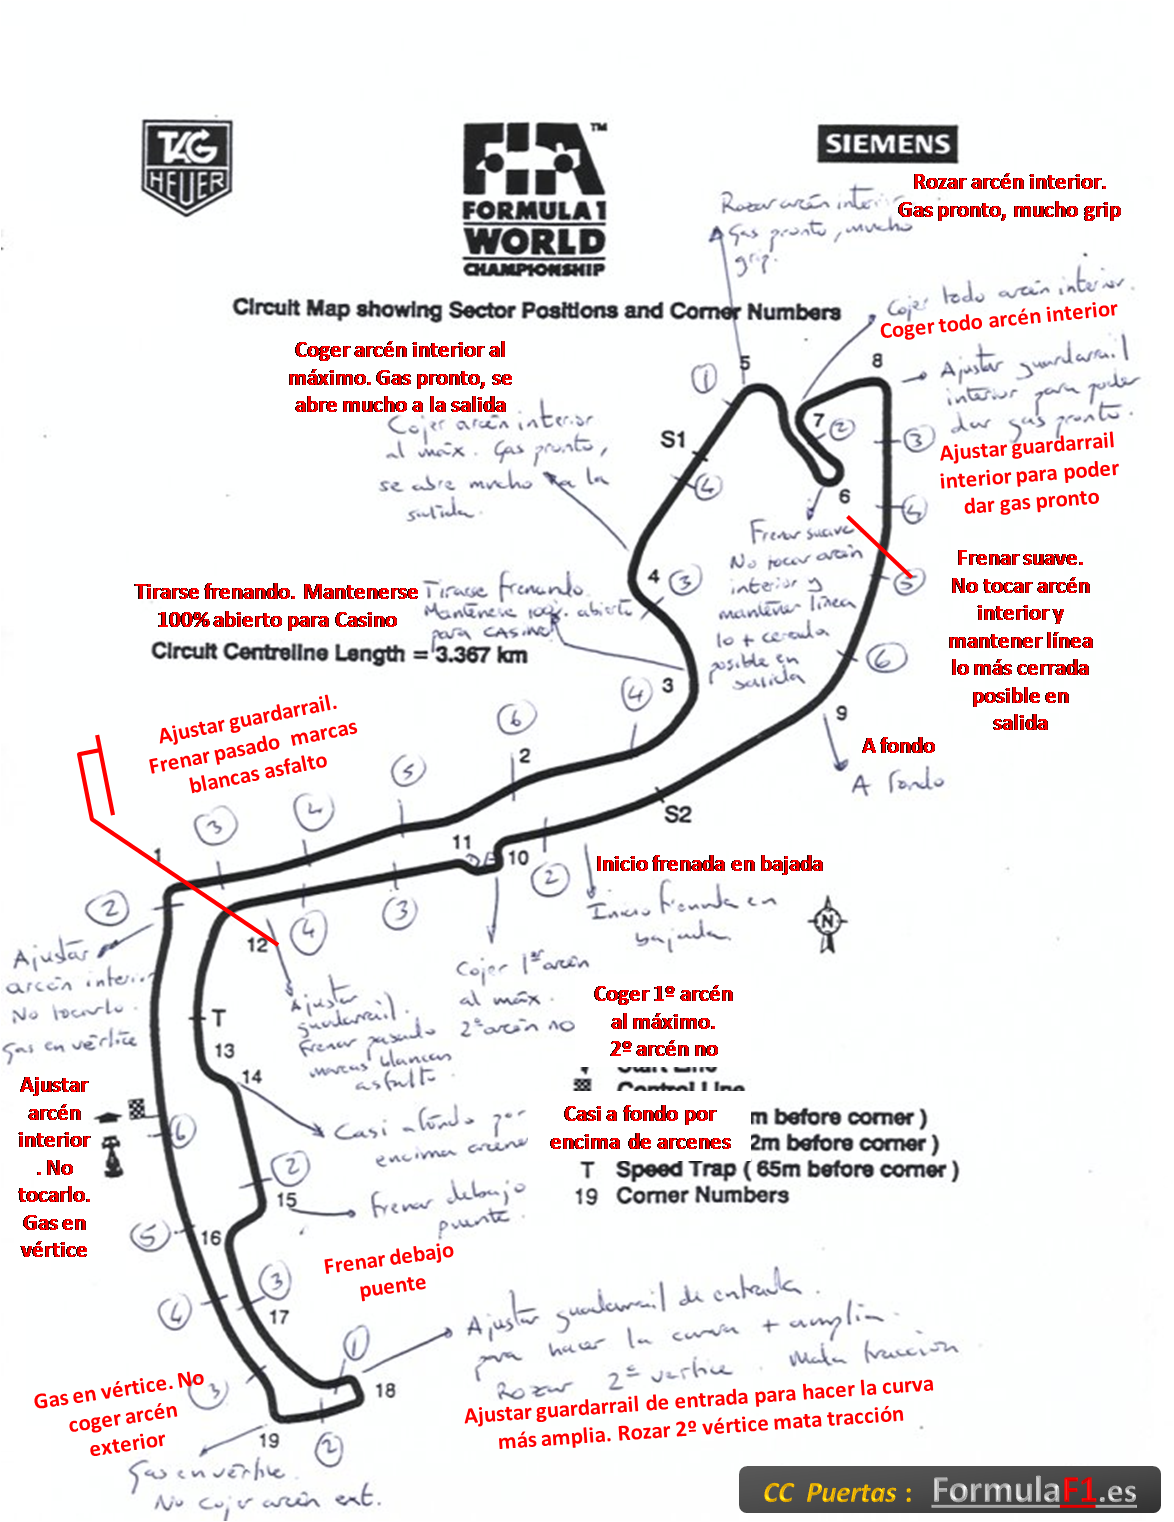 TAG
HEUER
FIA™
FORMULA 1
WORLD
CHAMPIONSHIP
SIEMENS
Rozar arcén interior.
Gas pronto, mucho grip
Rozar arcén interi
Gas pronto, mucho
grip.
Circuit Map showing Sector Positions and Corner Numbers
Cojer todo arcén interior.
Coger todo arcén interior
Coger arcén interior al
máximo. Gas pronto, se
abre mucho a la salida
Cojer arcén interior
al máx. Gas pronto,
se abre mucho a la
salida.
5
8
1
Ajustar guardarrail
interior para poder
dar gas pronto.
7
2
S1
3
Ajustar guardarrail
interior para poder
dar gas pronto
4
6
4
Frenar suave
No tocar arcén
interior y
mantener línea
lo + cerrada
posible en
salida
Frenar suave.
No tocar arcén
interior y
mantener línea
lo más cerrada
posible en
salida
5
4
3
Tirarse frenando. Mantenerse
100% abierto para Casino
Tirarse frenando.
Mantenerse 100% abierto
para CASINO
Circuit Centreline Length = 3.367 km
6
3
4
9
A fondo
A fondo
Ajustar guardarrail.
Frenar pasado marcas
blancas asfalto
6
2
5
4
3
S2
1
11
10
Inicio frenada en bajada
2
Inicio frenada en
bajada.
2
3
4
12
N
Ajustar
arcén interior
No tocarlo.
Gas en vértice
Cojer 1er arcén
al máx.
2º arcén no
Coger 1º arcén
al máximo.
2º arcén no
Ajustar
guardarrail.
Frenar pasado
marcas blancas
asfalto.
T
13
14
Start Line
Control Line
Ajustar
arcén
interior
. No
tocarlo.
Gas en
vértice
6
Casi a fondo por
encima arcenes
Casi a fondo por
encima de arcenes
m before corner )
2m before corner )
T Speed Trap ( 65m before corner )
19 Corner Numbers
2
15
Frenar debajo
puente.
5
16
Frenar debajo
puente
3
4
17
1
Ajustar guardarrail de entrada
para hacer la curva + amplia.
Rozar 2º vertice. Mata tracción
18
Ajustar guardarrail de entrada para hacer la curva
más amplia. Rozar 2º vértice mata tracción
3
Gas en vértice. No
coger arcén
exterior
19
2
Gas en vértice.
No cojer arcén ext.
CC Puertas : FormulaF1.es